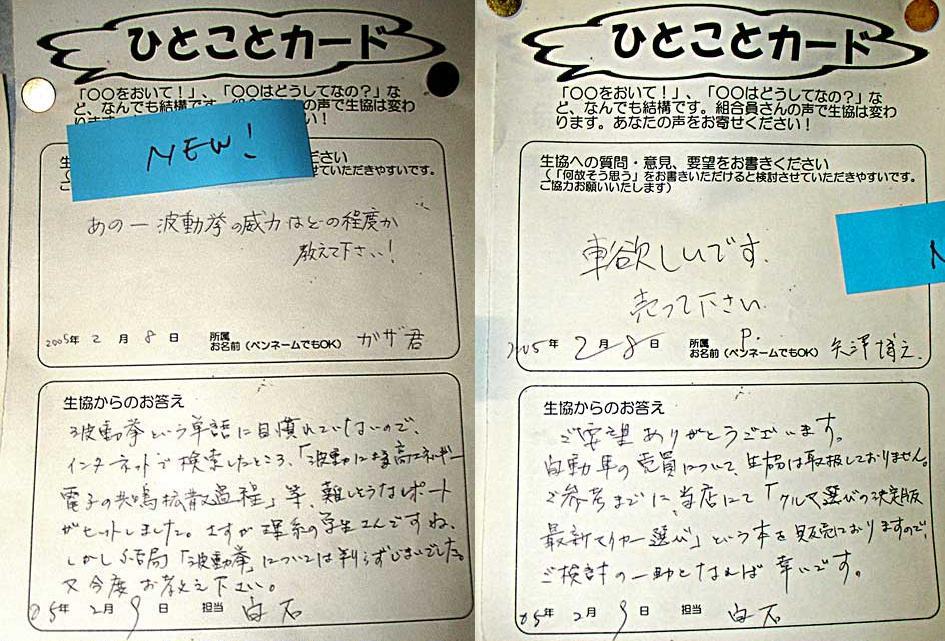 ひとことカード
「〇〇をおいて！」、「〇〇はどうしてなの？」な
ど、なんでも結構です。組合員さんの声で生協は変わ
い！
NEW!
ださい
せていただきやすいです。
あの一波動挙の威力はどの程度か
教えて下さい！
2005年 2月 8日 所属
お名前（ペンネームでもOK） ガザ君
生協からのお答え
波動挙という単語に目慣れていないので、
インターネットで検索したところ、「波動に様高エネルギー
電子の共鳴拡散過程」等、難しそうなレポート
がヒットしました。さすが理系の学生さんですね、
しかし結局「波動挙」については判らずじまいでした。
又今度お教え下さい。
05年 2月 9日 担当 白石
ひとことカード
「〇〇をおいて！」、「〇〇はどうしてなの？」な
ど、なんでも結構です。組合員さんの声で生協は変わ
ります。あなたの声をお寄せください！
生協への質問・意見、要望をお書きください
（「何故そう思う」をお書きいただけると検討させていただきやすいです。
ご協力お願いいたします）
車欲しいです。
売って下さい
2005年 2月 8日 所属 P.
お名前（ペンネームでもOK） 矢澤博之
生協からのお答え
ご要望ありがとうございます。
自動車の売買について、生協は取扱しておりません。
ご参考までに当店にて「クルマ選びの決定版
最新マイカー選び」という本を販売しておりますので、
ご検討の一助となれば幸いです。
05年 2月 9日 担当 白石